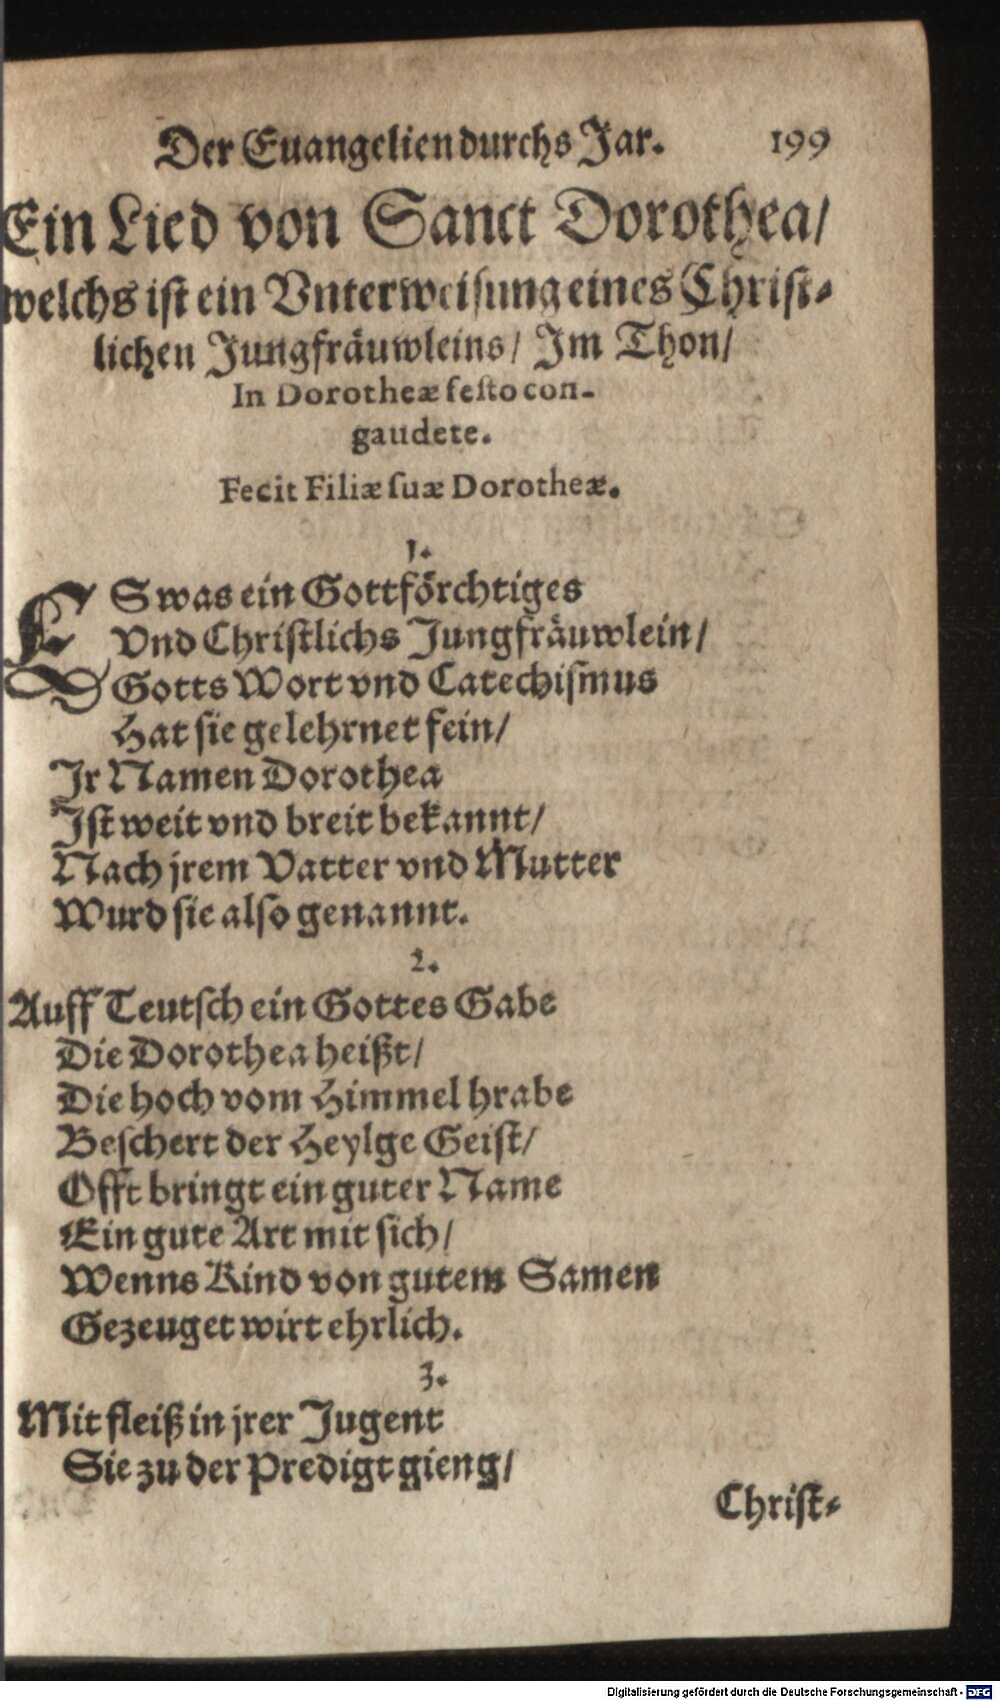 Der Euangelien durchs Jar. 199
Ein Lied von Sanct Dorothea/
welchs ist ein Vnterweisung eines Christ-
lichen Jungfräuwleins/ Im Thon/
In Dorotheæ festo con-
gaudete.
Fecit Filiæ suæ Dorotheæ.
1.
ES was ein Gottförchtiges
Vnd Christlichs Jungfräuwlein/
Gotts Wort vnd Catechismus
Hat sie gelehrnet fein/
Jr Namen Dorothea
Jst weit vnd breit bekannt/
Nach jrem Vatter vnd Mutter
Wurd sie also genannt.
2.
Auff Teutsch ein Gottes Gabe
Die Dorothea heißt/
Die hoch vom Himmel hrabe
Beschert der Heylge Geist/
Offt bringt ein guter Name
Ein gute Art mit sich/
Wenns Kind von gutem Samen
Gezeuget wirt ehrlich.
3.
Mit fleiß in jrer Jugent
Sie zu der Predigt gieng/
Christ-
Digitalisierung gefördert durch die Deutsche Forschungsgemeinschaft - DFG